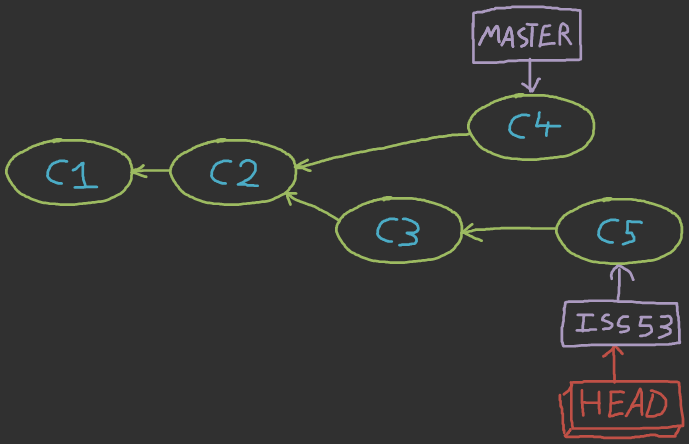 MASTER
C4
C1
C2
C3
C5
ISS53
HEAD